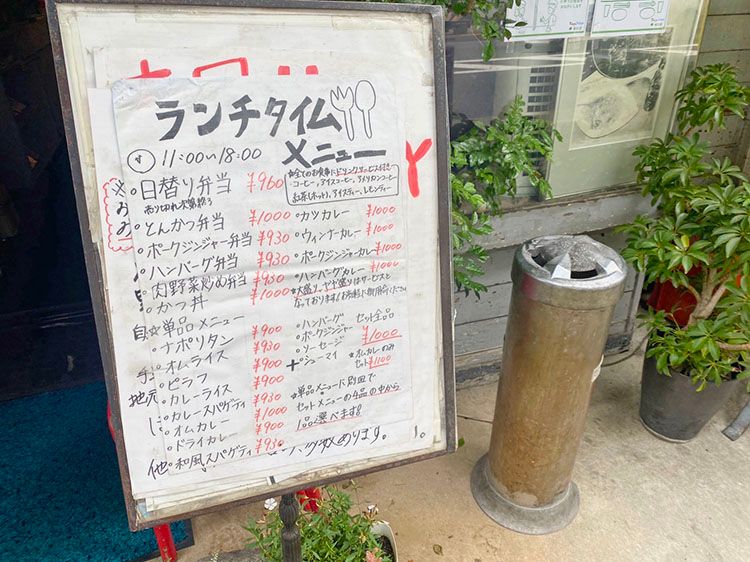 ランチタイム
11:00〜18:00 メニュー
日替り弁当 ¥960
売り切れ次第終了
とんかつ弁当 ¥1000
ポークジンジャー弁当 ¥930
ハンバーグ弁当 ¥930
肉野菜炒め弁当 ¥930
かつ丼 ¥1000
☆単品メニュー
ナポリタン ¥900
オムライス ¥930
ピラフ ¥900
カレーライス ¥900
カレースパゲティ ¥930
オムカレー ¥1000
ドライカレー ¥900
和風スパゲティ ¥930
☆全てのお食事にドリンクサービス付き
コーヒー,アイスコーヒー,アメリカンコーヒー
紅茶(ホット),アイスティー,レモンティー
カツカレー ¥1000
ウィンナーカレー ¥1000
ポークジンジャーカレー ¥1000
ハンバーグカレー ¥1000
☆大盛り,やや盛りはサービスと
なっております!お気軽に御用命ください
ハンバーグ セット全品
ポークジンジャー
ソーセージ ¥1000
+シューマイ ☆オムカレーのみ
セット¥1100
☆単品メニューに別皿で
セットメニューの4品の中から
1品選べます!